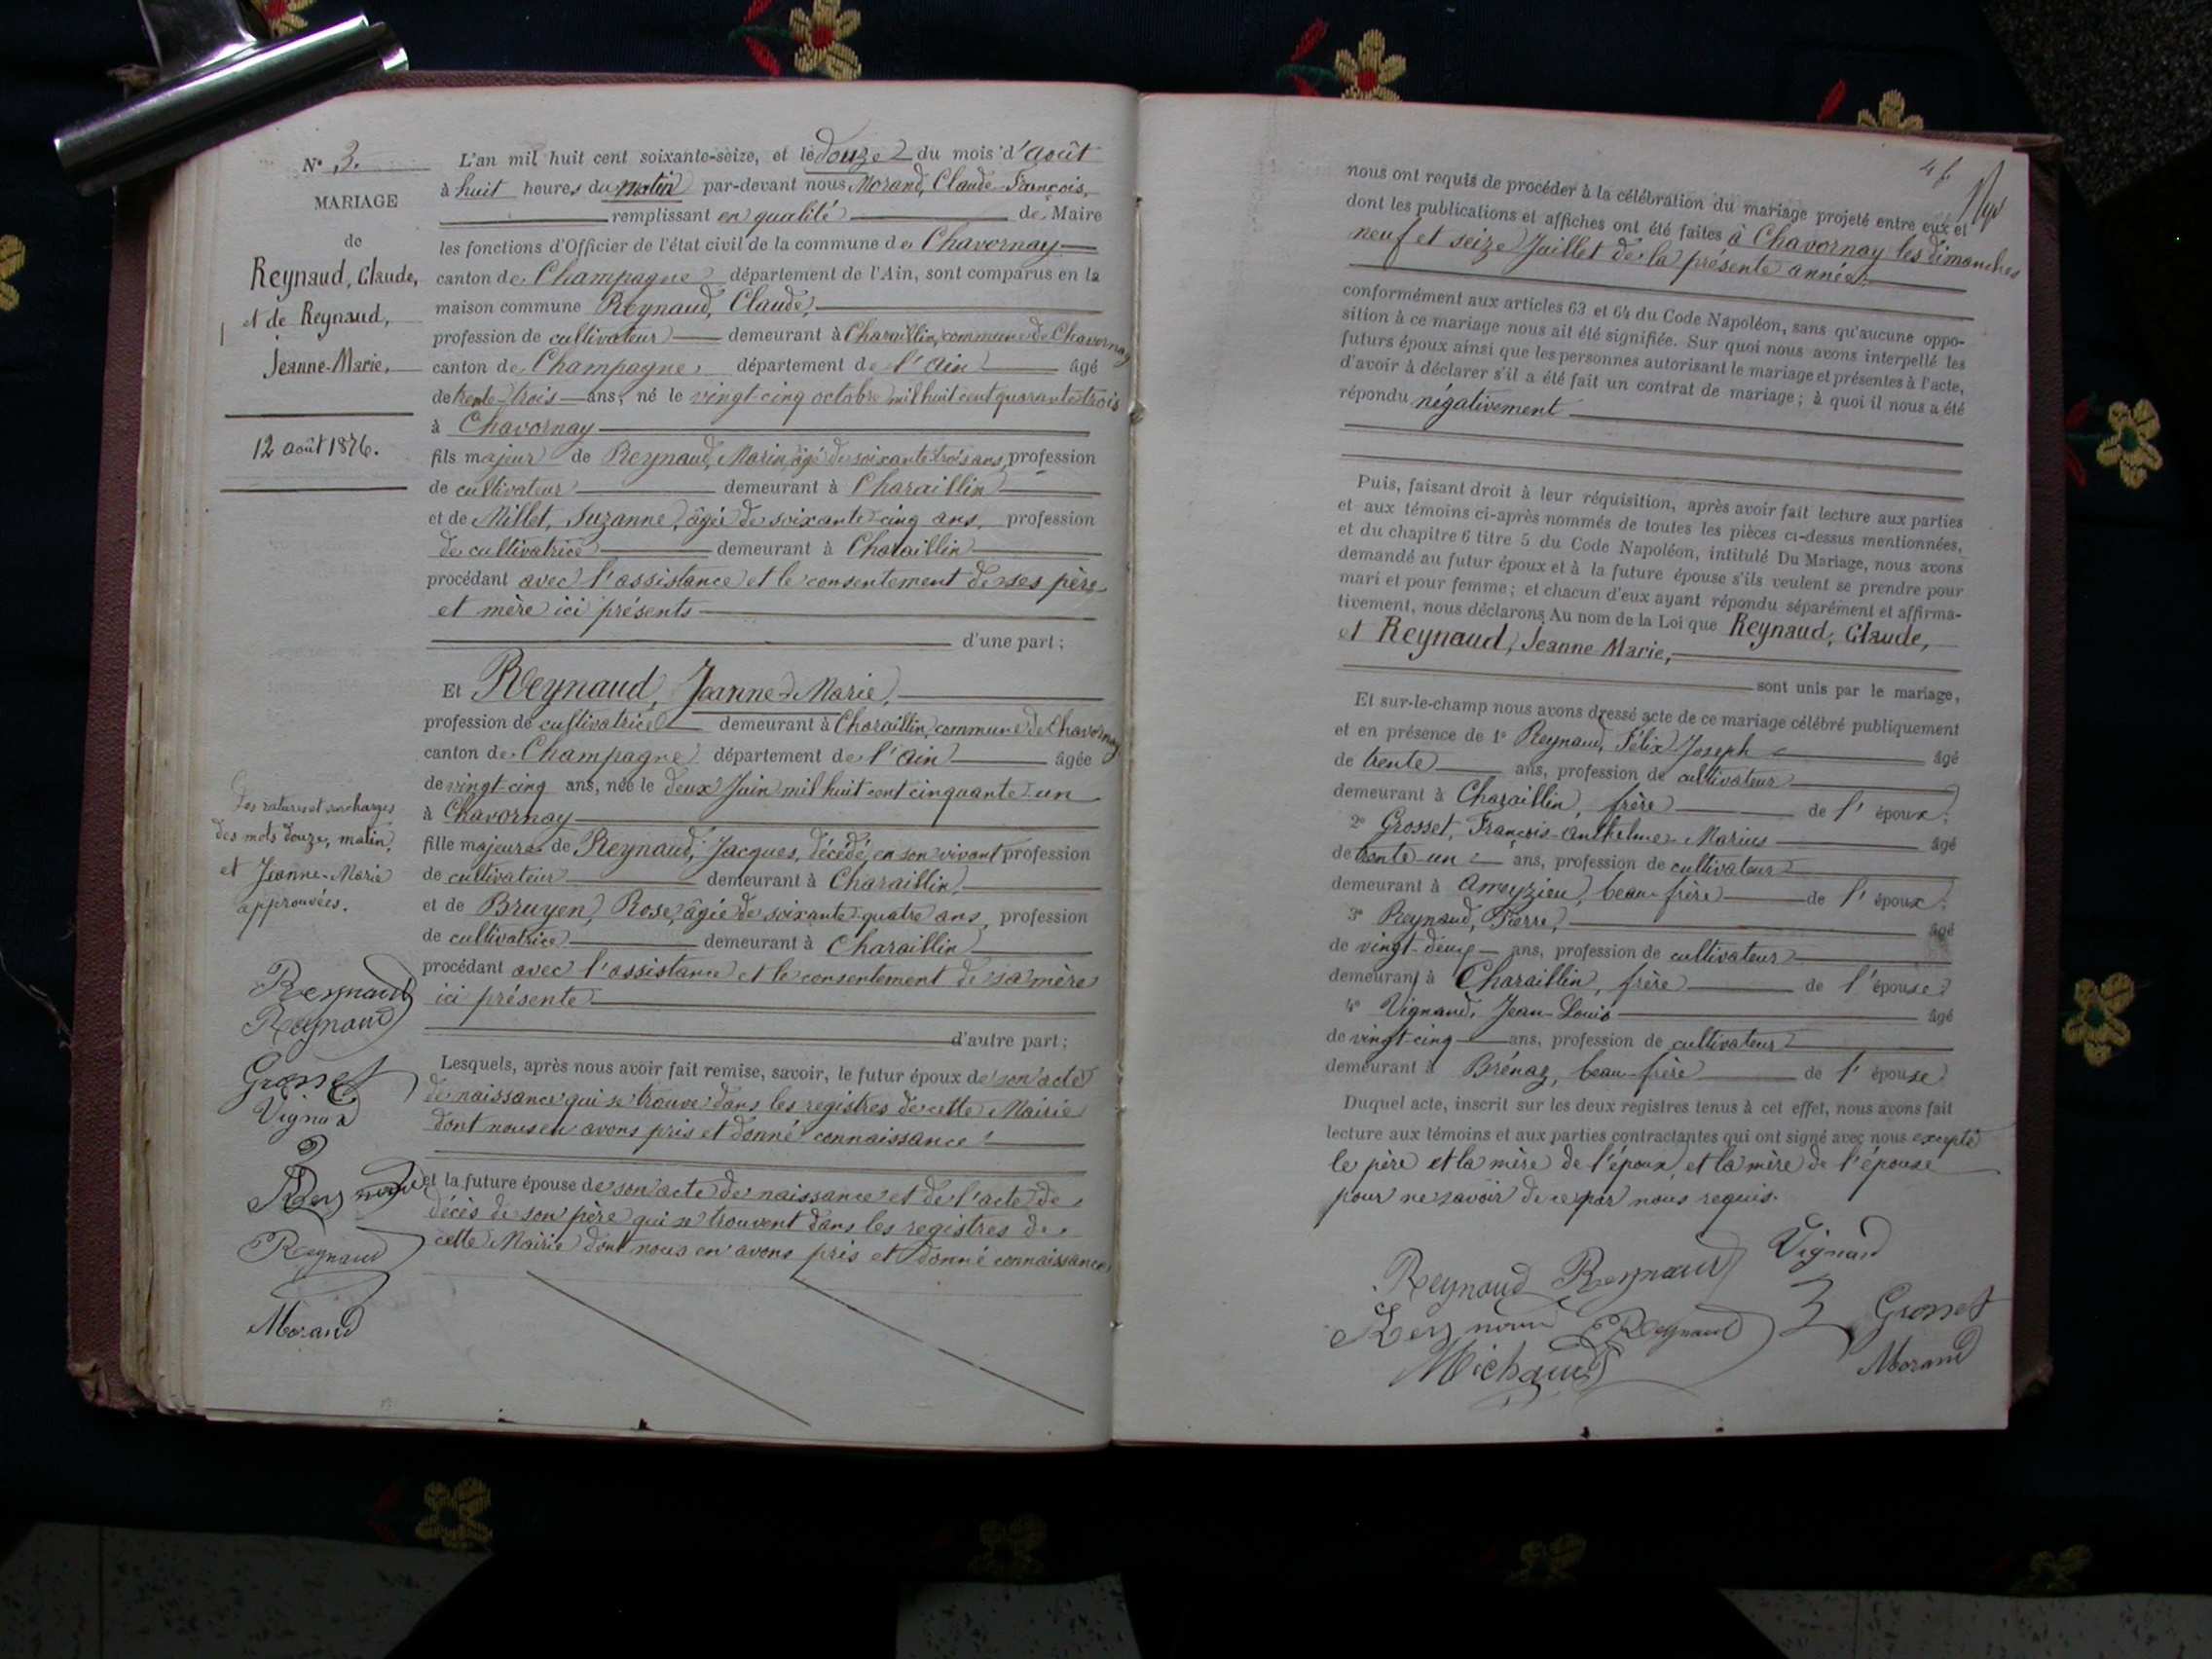 N° 3.
MARIAGE
de
Reynaud, Claude,
et de Reynaud,
Jeanne-Marie,
12 août 1876.
Des ratures et surcharges
des mots douze, matin,
et Jeanne-Marie
approuvées.
Reynaud
Reynaud
Grosset
Vignand
Reynaud
Reynaud
Morand
L'an mil huit cent soixante-seize, et le douze du mois d'août
à huit heures du matin par-devant nous Morand, Claude-François,
remplissant en qualité de Maire
les fonctions d'Officier de l'état civil de la commune de Chavornay
canton de Champagne département de l'Ain, sont comparus en la
maison commune Reynaud, Claude,
profession de cultivateur demeurant à Charaillin, commune de Chavornay
canton de Champagne, département de l'Ain âgé
de trente-trois ans, né le vingt-cinq octobre mil huit cent quarante-trois
à Chavornay
fils majeur de Reynaud, Marin, âgé de soixante trois ans, profession
de cultivateur demeurant à Charaillin
et de Millet, Suzanne, âgée de soixante-cinq ans, profession
de cultivatrice demeurant à Charaillin
procédant avec l'assistance et le consentement de ses père
et mère ici présents
d'une part;
Et Reynaud, Jeanne-Marie,
profession de cultivatrice demeurant à Charaillin, commune de Chavornay
canton de Champagne département de l'Ain âgée
de vingt-cinq ans, née le deux Juin mil huit cent cinquante-un
à Chavornay
fille majeure de Reynaud, Jacques, décédé, en son vivant profession
de cultivateur demeurant à Charaillin
et de Bruyen, Rose, âgée de soixante-quatre ans, profession
de cultivatrice demeurant à Charaillin
procédant avec l'assistance et le consentement de sa mère
ici présente
d'autre part;
Lesquels, après nous avoir fait remise, savoir, le futur époux de son acte
de naissance qui se trouve dans les registres de cette Mairie
dont nous en avons pris et donné connaissance
et la future épouse de son acte de naissance et de l'acte de
décès de son père qui se trouvent dans les registres de
cette Mairie dont nous en avons pris et donné connaissance
nous ont requis de procéder à la célébration du mariage projeté entre eux et
dont les publications et affiches ont été faites à Chavornay les dimanches
neuf et seize Juillet de la présente année.
conformément aux articles 63 et 64 du Code Napoléon, sans qu'aucune oppo-
sition à ce mariage nous ait été signifiée. Sur quoi nous avons interpellé les
futurs époux ainsi que les personnes autorisant le mariage et présentes à l'acte,
d'avoir à déclarer s'il a été fait un contrat de mariage; à quoi il nous a été
répondu négativement
Puis, faisant droit à leur réquisition, après avoir fait lecture aux parties
et aux témoins ci-après nommés de toutes les pièces ci-dessus mentionnées,
et du chapitre 6 titre 5 du Code Napoléon, intitulé Du Mariage, nous avons
demandé au futur époux et à la future épouse s'ils veulent se prendre pour
mari et pour femme; et chacun d'eux ayant répondu séparément et affirma-
tivement, nous déclarons Au nom de la Loi que Reynaud, Claude,
et Reynaud, Jeanne-Marie,
sont unis par le mariage,
Et sur-le-champ nous avons dressé acte de ce mariage célébré publiquement
et en présence de 1° Reynaud, Félix Joseph âgé
de trente ans, profession de cultivateur
demeurant à Charaillin, frère de l'époux.
2° Grosset, François-Anthelme-Marius âgé
de trente-un ans, profession de cultivateur
demeurant à Ameyzieu, beau-frère de l'époux.
3° Reynaud, Pierre, âgé
de vingt-deux ans, profession de cultivateur
demeurant à Charaillin, frère de l'épouse.
4° Vignand, Jean-Louis âgé
de vingt-cinq ans, profession de cultivateur
demeurant à Brénaz, beau-frère de l'épouse.
Duquel acte, inscrit sur les deux registres tenus à cet effet, nous avons fait
lecture aux témoins et aux parties contractantes qui ont signé avec nous excepté
le père et la mère de l'époux et la mère de l'épouse
pour ne savoir de ce par nous requis.
Reynaud Reynaud Vignand
Reynaud Reynaud Grosset
Michaud Morand